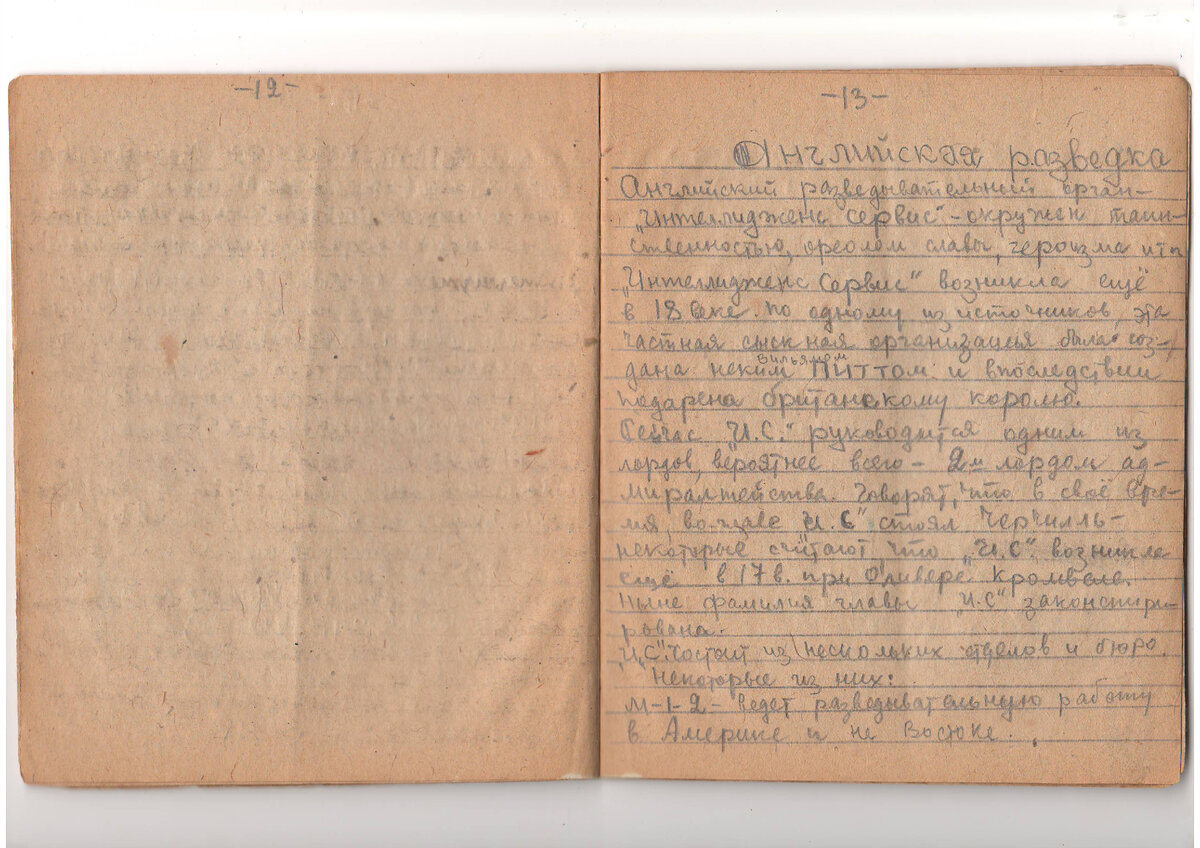 -12-
-13-
Английская разведка
Английский разведывательный орган-
„Интеллидженс Сервис" - окружен таин-
ственностью, ореолом славы, героизма и т п
„Интеллидженс Сервис" возникла ещё
в 18 веке. По одному из источников, эта
частная сыскная организация была соз-
дана неким Вильямом Питтом и впоследствии
подарена британскому королю.
Сейчас „И.С." руководится одним из
лордов, вероятнее всего - 2м лордом ад-
миралтейства. Говорят, что в своё вре-
мя, во главе „И.С" стоял Черчилль-
некоторые считают что „И.С". возникла
ещё в 17 в. при Оливере Кромвеле.
Ныне фамилия главы „И.С" законспири-
рована.
„И.С". состоит из нескольких отделов и бюро.
Некоторые из них:
М-1-2 - ведет разведывательную работу
в Америке и не Востоке.